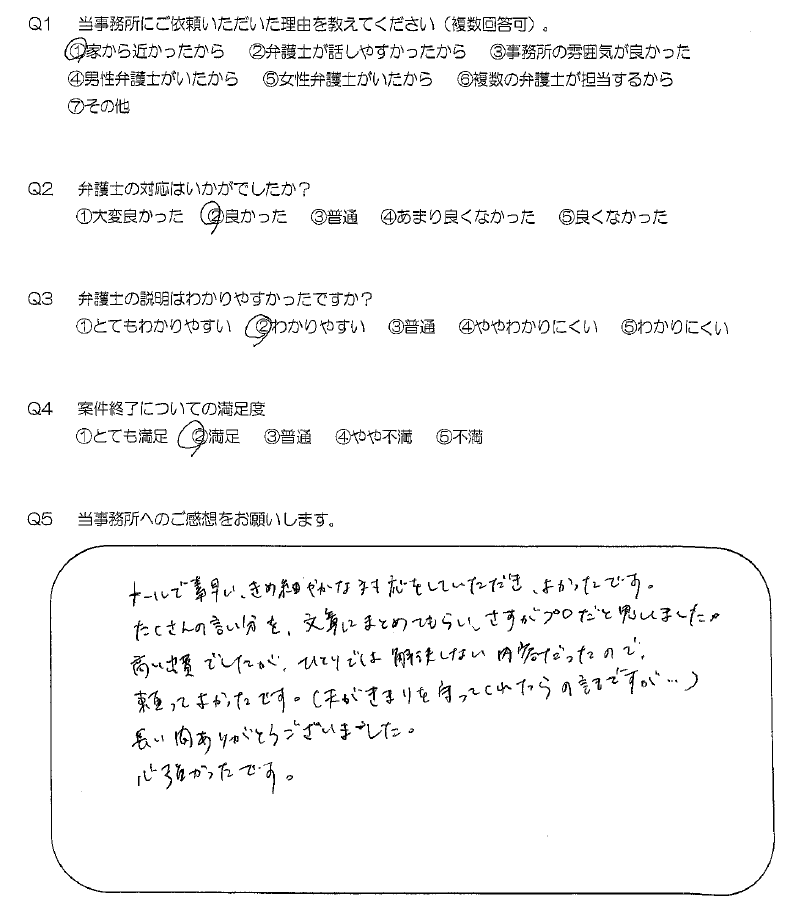 Q1 当事務所にご依頼いただいた理由を教えてください（複数回答可）。
①家から近かったから ②弁護士が話しやすかったから ③事務所の雰囲気が良かった
④男性弁護士がいたから ⑤女性弁護士がいたから ⑥複数の弁護士が担当するから
⑦その他
Q2 弁護士の対応はいかがでしたか？
①大変良かった ②良かった ③普通 ④あまり良くなかった ⑤良くなかった
Q3 弁護士の説明はわかりやすかったですか？
①とてもわかりやすい ②わかりやすい ③普通 ④ややわかりにくい ⑤わかりにくい
Q4 案件終了についての満足度
①とても満足 ②満足 ③普通 ④やや不満 ⑤不満
Q5 当事務所へのご感想をお願いします。
メールで素早い、きめ細やかな対応をしていただき、よかったです。
たくさんの言い分を、文章にまとめてもらい、さすがプロだと思いました。
高い出費でしたが、ひとりでは解決しない内容だったので、
頼ってよかったです。（夫がきまりを守ってくれたらの話ですが…）
長い間ありがとうございました。
心強かったです。